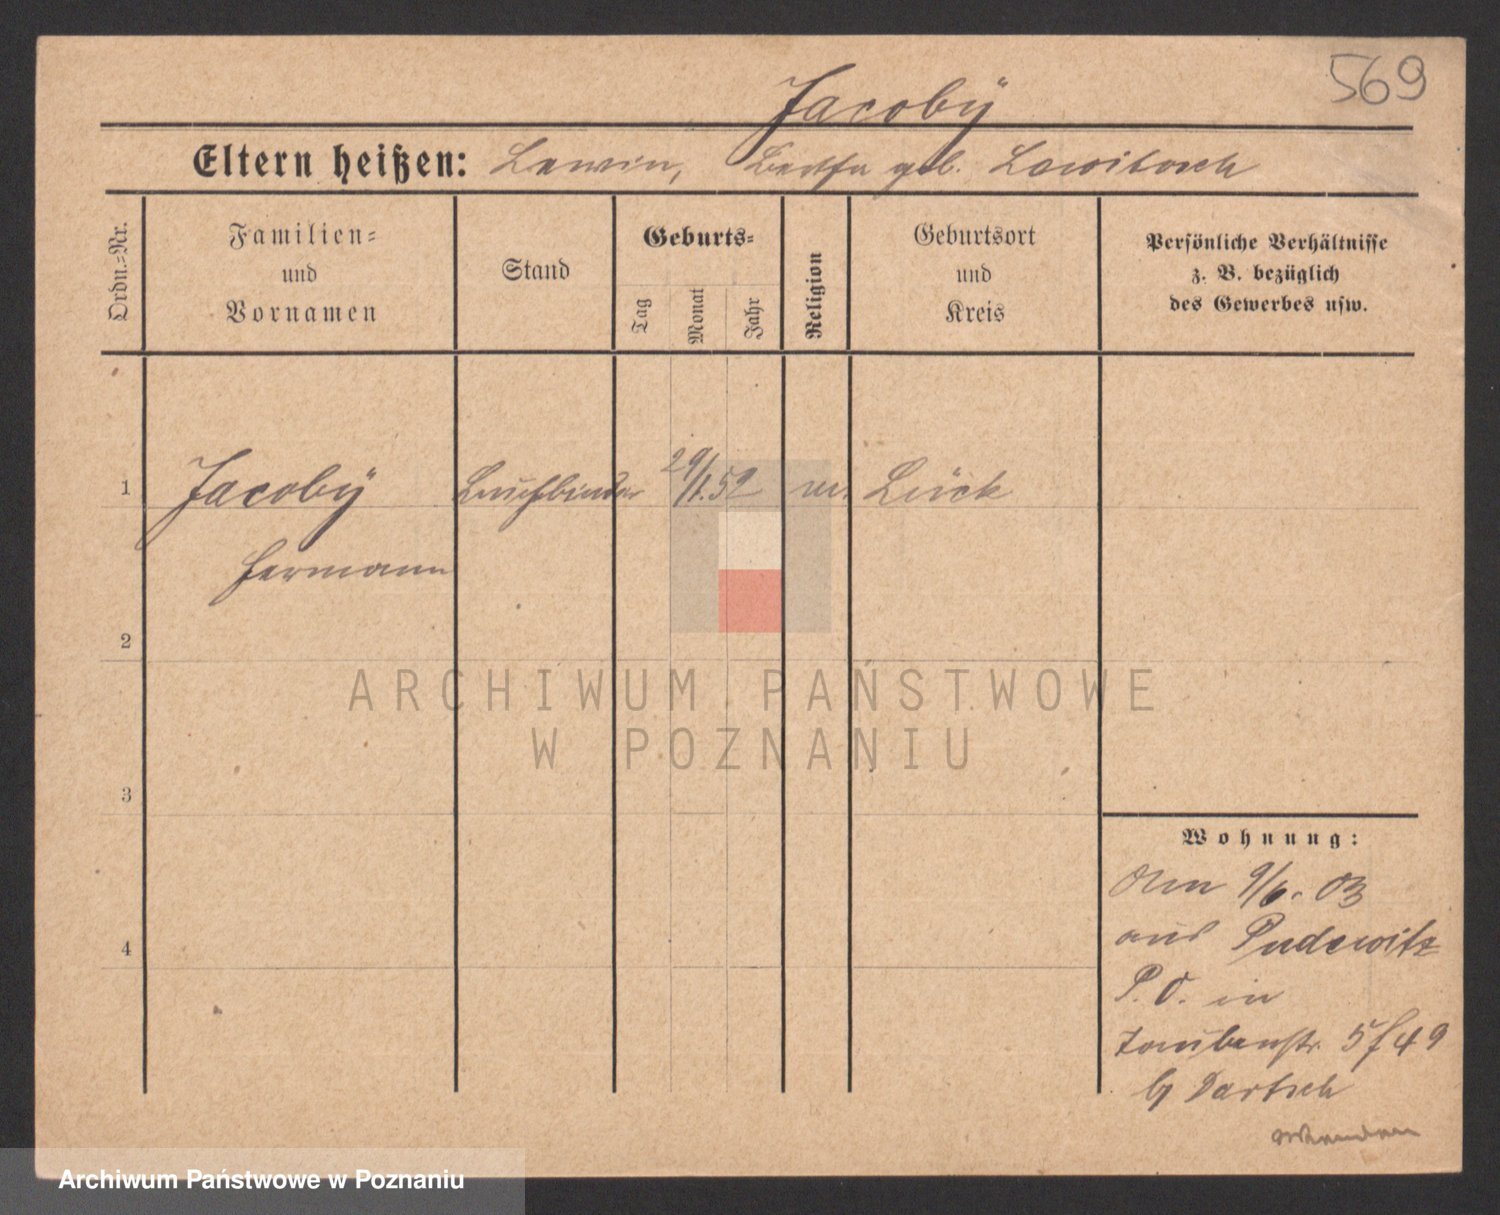 569
Jacoby
Eltern heißen: Lewin, Bertha geb. Lewitasch
Ordn.-Nr.
Familien-
und
Vornamen
Stand
Geburts-
Tag
Monat
Jahr
Religion
Geburtsort
und
Kreis
Persönliche Verhältnisse
z. B. bezüglich
des Gewerbes usw.
1 Jacoby Buchbinder 29/1.52 m. Lück
Hermann
2
3
4
Wohnung:
Am 9/6. 03
aus Pudewitz
P. O. in
Taubenstr. 5 f 49
by Dartsch
Wenden
ARCHIWUM PAŃSTWOWE
W POZNANIU
Archiwum Państwowe w Poznaniu